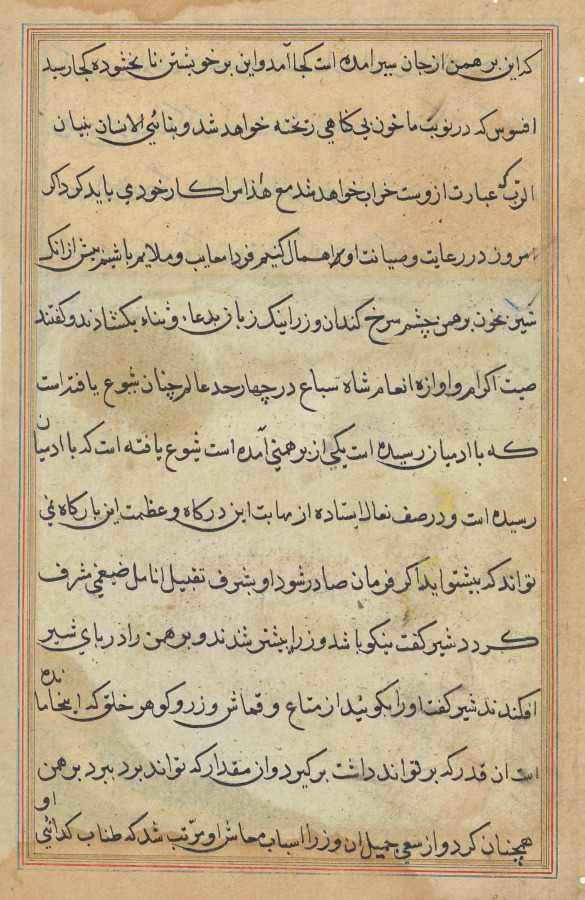 که این برهمن از جان سیر امده است کجا آمد و این بر خویشتن نا بخشوده کجا رسید
افسوس که در نوبت ما خون بی کناهی ریخته خواهد شد و بنائی الانسان بنیان
الرّب که عبارت ازوست خراب خواهد شد مع هذا مرا کار خودی باید کرد اکر
امروز در رعایت و صیانت او اهمال کنیم فردا معایب و ملایم باشیم پیش از انک
شیر بخون برهمن چشم سرخ کند ان وزرا اینک زبان بدعا و ثناء بکشادند و کفتند
صیت اکرام و اوازه انعام شاه سباع در چهار حد عالم چنان شیوع یافته است
که با ادمیان رسیده است یکی از برهمنی آمده است شیوع یافته است که با ادمیان
رسیده است و در صف نعال ایستاده از مهابت این درکاه و عظمت این بارکاه نمی
تواند که پیشتر اید اکر فرمان صادر شود او بشرف تقبیل انامل ضیغمی مشرف
کردد شیر کفت نیکو باشد وزرا پیشتر شدند و برهمن را در پای شیر
افکندند شیر کفت او را بکوئید از متاع و قماش و زر و کوهر خلق که اینجا مانده
است ان قدر که بر تواند داشت بر کیرد و ان مقدار که تواند برد ببرد برهمن
همچنان کرد و از سعی جمیل ان وزرا اسباب معاش او مرتب شد که طناب کدائی او